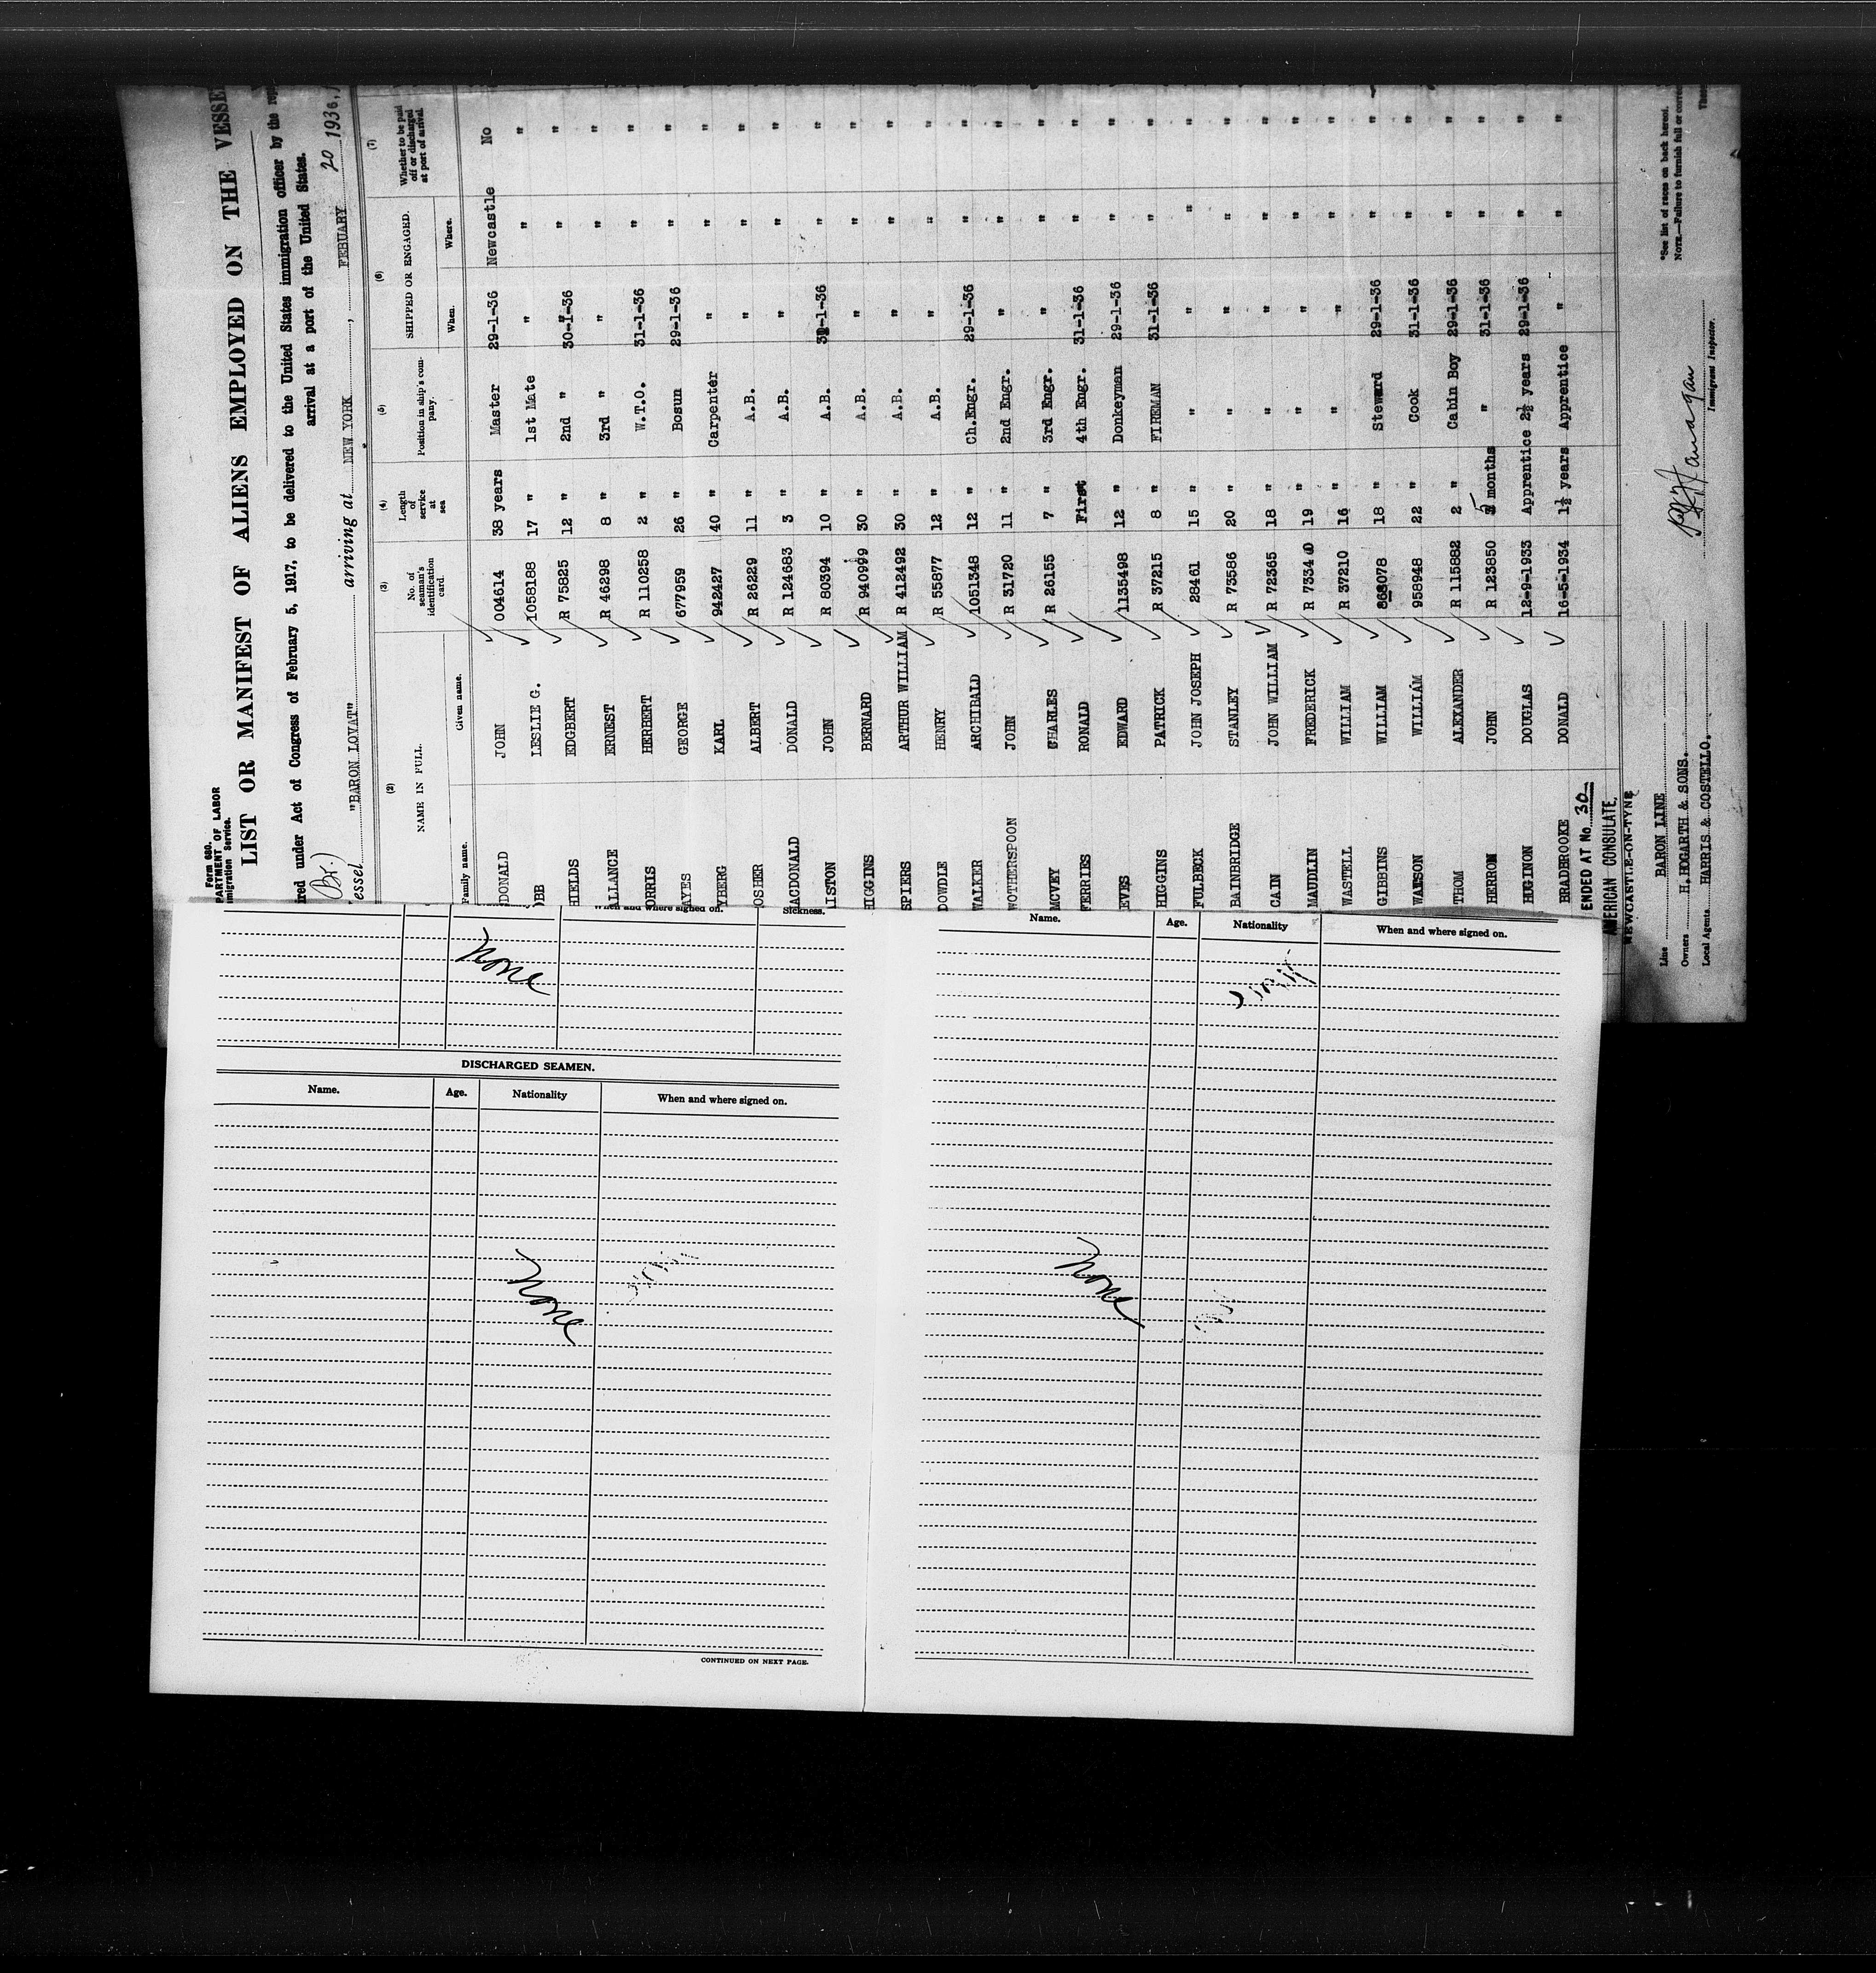 Form 680.
PARTMENT OF LABOR
mmigration Service.
LIST OR MANIFEST OF ALIENS EMPLOYED ON THE VESSE
ired under Act of Congress of February 5, 1917, to be delivered to the United States immigration officer by the
arrival at a port of the United States.
(Br.)
essel "BARON LOVAT" arriving at NEW YORK, FEBUARY 20 1936,
(2) (3) (4) (5) (6) (7)
NAME IN FULL. No. of seaman's identification card. Length of service at sea Position in ship's company. SHIPPED OR ENGAGED. Whether to be paid off or discharged at port of arrival.
Family name. Given name. When. Where.
DONALD JOHN 004614 38 years Master 29-1-36 Newcastle No
OBB LESLIE G. 1058188 17 " 1st Mate " " "
HIELDS EDGBERT R 75825 12 " 2nd " 30-1-36 " "
LLANCE ERNEST R 46298 8 " 3rd " " " "
ORRIS HERBERT R 110258 2 " W.T.O. 31-1-36 " "
AYES GEORGE 677959 26 " Bosun 29-1-36 " "
YBERG KARL 942427 40 " Carpenter " " "
OSHER ALBERT R 26229 11 " A.B. " " "
ACDONALD DONALD R 124683 3 " A.B. " " "
AISTON JOHN R 80394 10 " A.B. 31-1-36 " "
HIGGINS BERNARD R 940999 30 " A.B. " " "
SPIERS ARTHUR WILLIAM R 412492 30 " A.B. " " "
DOWDLE HENRY R 55877 12 " A.B. " " "
WALKER ARCHIBALD 1051348 12 " Ch.Engr. 29-1-36 " "
WOTHERSPOON JOHN R 31720 11 " 2nd Engr. " " "
MCVEY CHARLES R 26155 7 " 3rd Engr. " " "
FERRIES RONALD First 4th Engr. 31-1-36 " "
EVES EDWARD 1135498 12 " Donkeyman 29-1-36 " "
HIGGINS PATRICK R 37215 8 " FIREMAN 31-1-36 " "
FULBECK JOHN JOSEPH 28461 15 " " " " "
BAINBRIDGE STANLEY R 73586 20 " " " " "
CAIN JOHN WILLIAM R 72365 18 " " " " "
MAUDLIN FREDERICK R 73340 19 " " " " "
WASTELL WILLIAM R 37210 16 " " " " "
GIBBINS WILLIAM 868078 18 " Steward 29-1-36 " "
WATSON WILLIAM 958948 22 " Cook 31-1-36 " "
THOM ALEXANDER R 115882 2 " Cabin Boy 29-1-36 " "
HERROM JOHN R 123850 5 months " 31-1-36 " "
HUGINON DOUGLAS 12-9-1933 Apprentice 2½ years 29-1-36 " "
BRADBROOKE DONALD 16-5-1934 1½ years Apprentice " " "
ENDED AT No. 30
AMERICAN CONSULATE,
NEWCASTLE-ON-TYNE
Line BARON LINE
Owners H.HOGARTH & SONS.
Local Agents HARRIS & COSTELLO.
Immigrant Inspector.
*See list of races on back hereof.
NOTE.—Failure to furnish full or correc
When and where signed on. Sickness.
None
DISCHARGED SEAMEN.
Name. Age. Nationality When and where signed on.
None
CONTINUED ON NEXT PAGE.
Name. Age. Nationality When and where signed on.
None